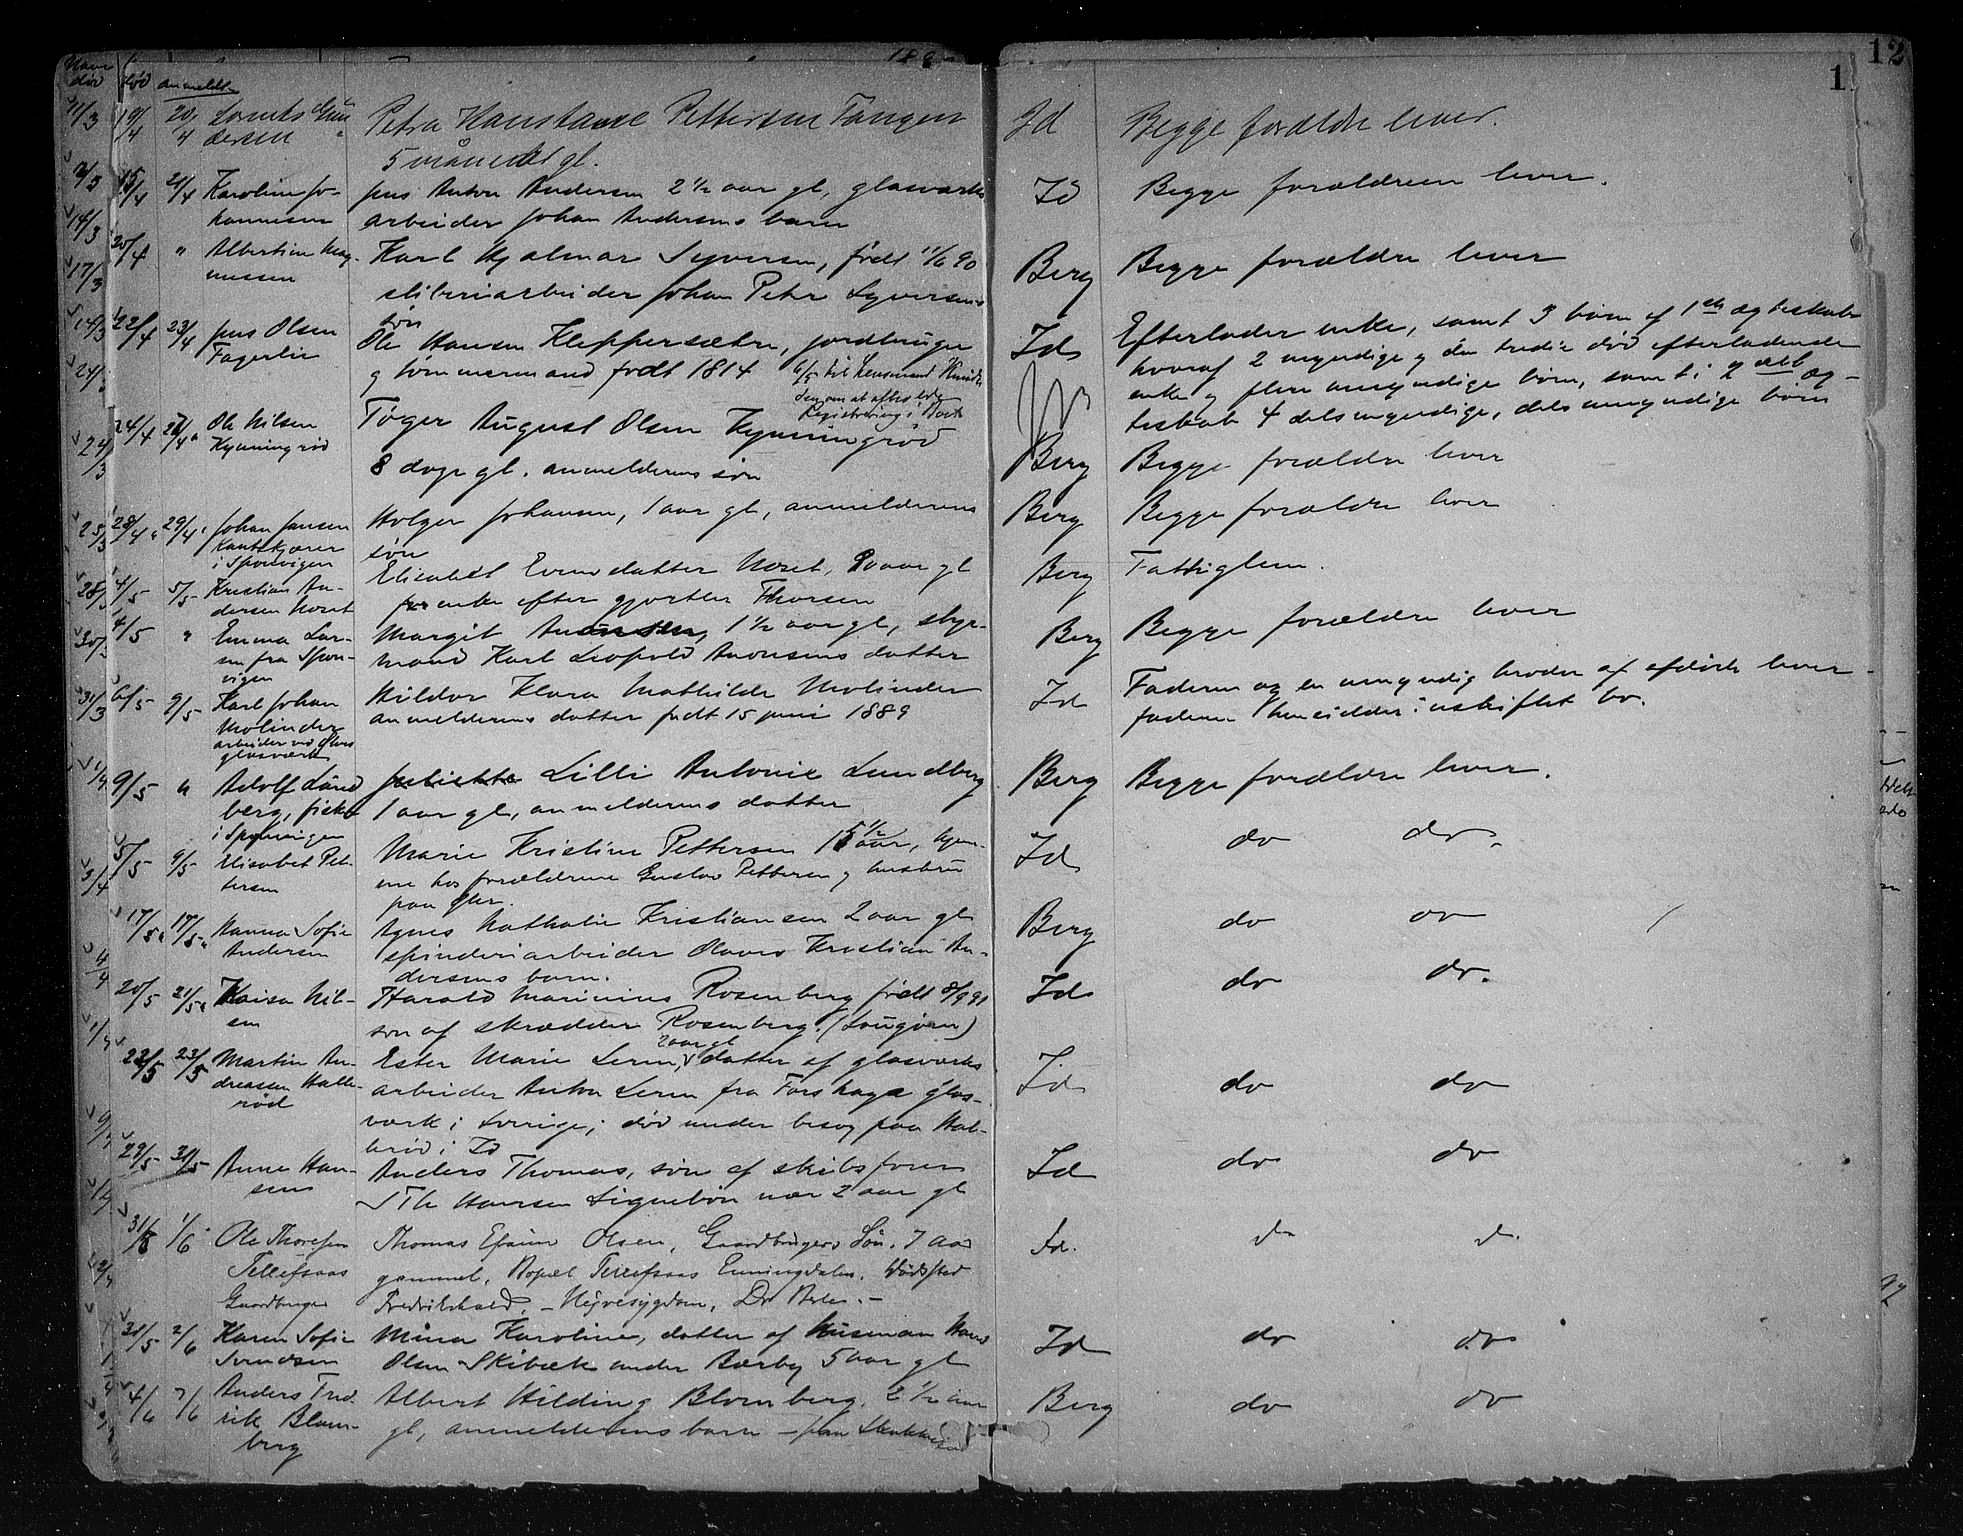 189
12
1
Naar
død
født
anmeldt
11/3
19/4
20/4
dersen
Petra Konstanse Pettersen Tangen
5 måneder gl.
Id
Begge forældre lever.
15/4
21/4
Karoline Jo-
hannesen
Jens Anton Andersen 2 1/2 aar gl, glasværks
arbeider Johan Andersens barn
Id
Begge forældrene lever.
14/3
20/4
"
Albertine Mag-
nussen
Karl Hjalmar Syversen, født 11/6 90
sliberiarbeider Johan Petter Syversens
søn
Berg
Begge forældre lever
17/3
22/4
23/4
Jens Olsen
Fagerlie
Ole Hansen Kleppersætre, jordbruger
og tømmermand født 1814
6/5 til Lensmand
om at afholde
Registrering i Boet
Id
Efterlader enke, samt 3 børn af 1ste ægteskab
hvoraf 2 myndige og den tredie død efterladende
enke og flere umyndige børn, samt i 2det æg-
teskab 4 dels myndige, dels umyndige børn
24/3
24/4
Ole Nilsen
Kynningrød
Tøger August Olsen Kynningrød
8 dage gl. anmelderens søn
Berg
Begge forældre lever
25/3
28/4
29/4
Johan Jansen
i Sponvigen
Holger Johansen, 1 aar gl, anmelderens
søn
Berg
Begge forældre lever
28/3
4/5
5/5
Kristian An-
dersen Noret
Elisabet Evensdatter Noret, 80 aar gl
enke efter gjortler Thorsen
Berg
Fattiglem.
30/3
4/5
"
Emma Lar-
sen fra Spon-
vigen
Margit Aronsen, 1 1/2 aar gl, styr-
mand Karl Leopold Aronsens datter
Berg
Begge forældre lever
31/3
6/5
9/5
Karl Johan
Molinder
arbeider ved
glasværk
Hildur Klara Mathilde Molinder
anmelderens datter født 15 juni 1889
Id
Faderen og en umyndig broder af afdøde lever
faderen hensidder i uskiftet bo.
1/4
9/5
"
Adolf Lund
berg, fisker
i Sponvigen
Lilli Antonie Lundberg
1 aar gl, anmelderens datter
Berg
Begge forældre lever.
3/4
5/5
9/5
Elisabet Pet-
tersen
Marie Kristine Pettersen 15 1/2 aar, hjem-
me hos forældrene Gustav Pettersen og hustru
paa
Id
do
do.
17/5
17/5
Hanna Sofie
Andersen
Agnes Nathalie Kristiansen 2 aar gl
spinderiarbeider Olaves Kristian An-
dersens barn.
Berg
do
do
4/4
20/5
21/5
Kaisa Nil-
sen
Harald Marinius Rosenberg født 8/9 91
søn af skrædder Rosenberg.
Id
do
do.
22/5
23/5
Martin An-
dreassen Halle-
rød
Ester Marie Lerin, 2 aar gl datter af glasværks
arbeider Anton Lerin fra Forshaga glas-
værk i Sverige; død under besøg paa Hal-
lerød i Id
Id
do
do
29/5
31/5
Anne Han-
sen
Anders Thomas, søn af skibsfører
Th Hansen Liquebøn nær 2 aar gl
Id
do
do
31/5
1/6
Ole Thoresen
Tellefsaas
Gaardbruger
Thomas Efraim Olsen, Gaardbrugers Søn. 7 Aar
gammel, Bopæl Tellefsaas Enningdalen. Dødssted
Fredrikshald. – Nyresygdom,
Id.
do
do
31/5
2/6
Karen Sofie
Svendsen
Mina Karoline, datter af Husman Hans
Olsen Skibæk under Aarby 5 aar gl
Id
do
do
4/6
7/6
Anders Fred-
rik Blom-
berg
Albert Hilding Blomberg. 2 1/2 aar
gl, anmelderens barn –
Berg
do
do